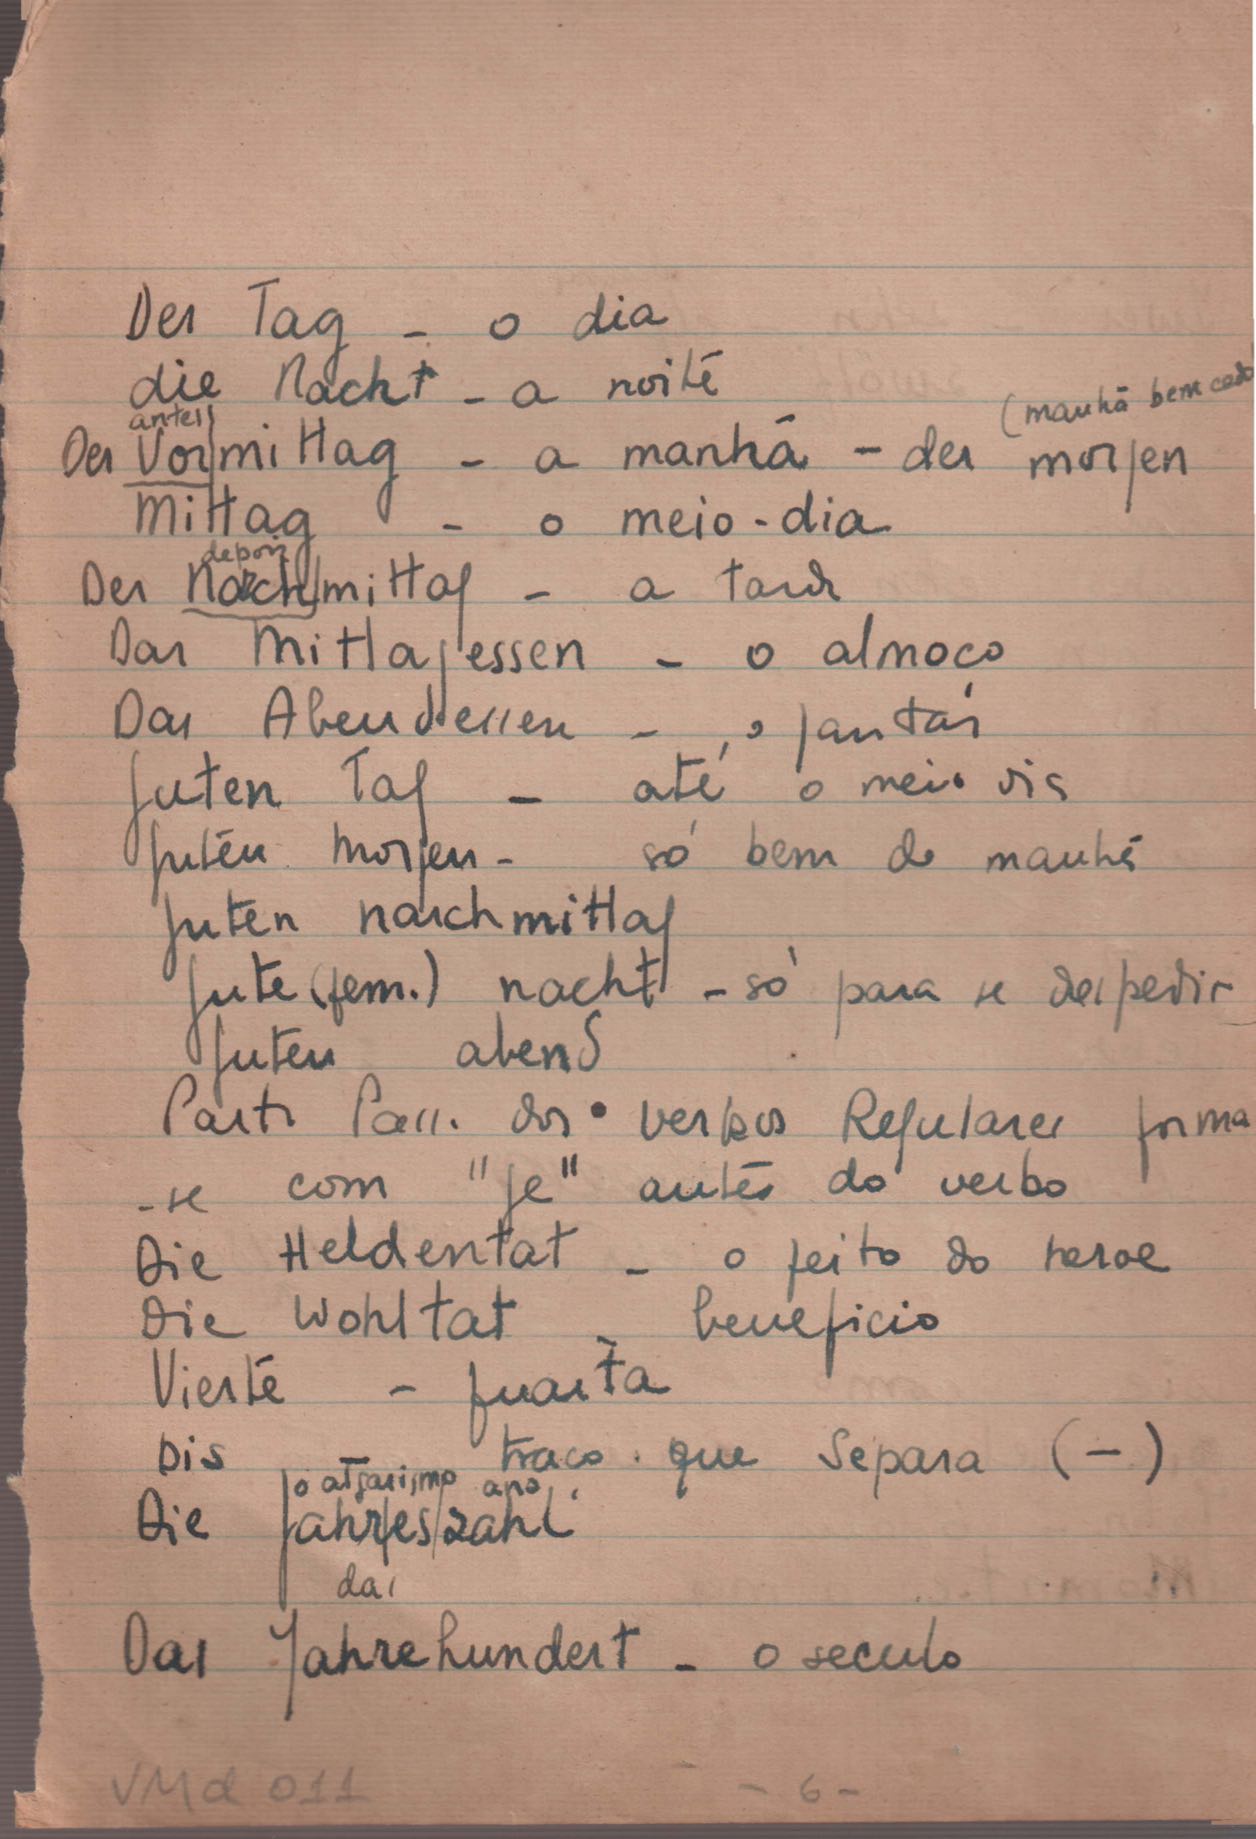 Der Tag - o dia
die Nacht - a noite
(manhã bem cedo
antes
Der Vor|mittag - a manhã - der morgen
Mittag - o meio-dia
depois
Der Nach|mittag - a tarde
Das Mittagessen - o almoco
Das Abendessen - o jantár
guten Tag - até o meio dia
guten morgen - só bem de manhã
guten nachmittag
gute (fem.) nacht - só para se despedir
guten abend
Parti Pass. dos verbos Regulares forma
-se com "ge" antes do verbo
Die Heldentat - o feito do heroe
Die Wohltat - beneficio
Vierte - quarta
Bis - traco que separa (-)
o algarismo ano
Die Jahr|es|zahl
das
Das Jahrehundert - o seculo
VMd 011 - 6 -